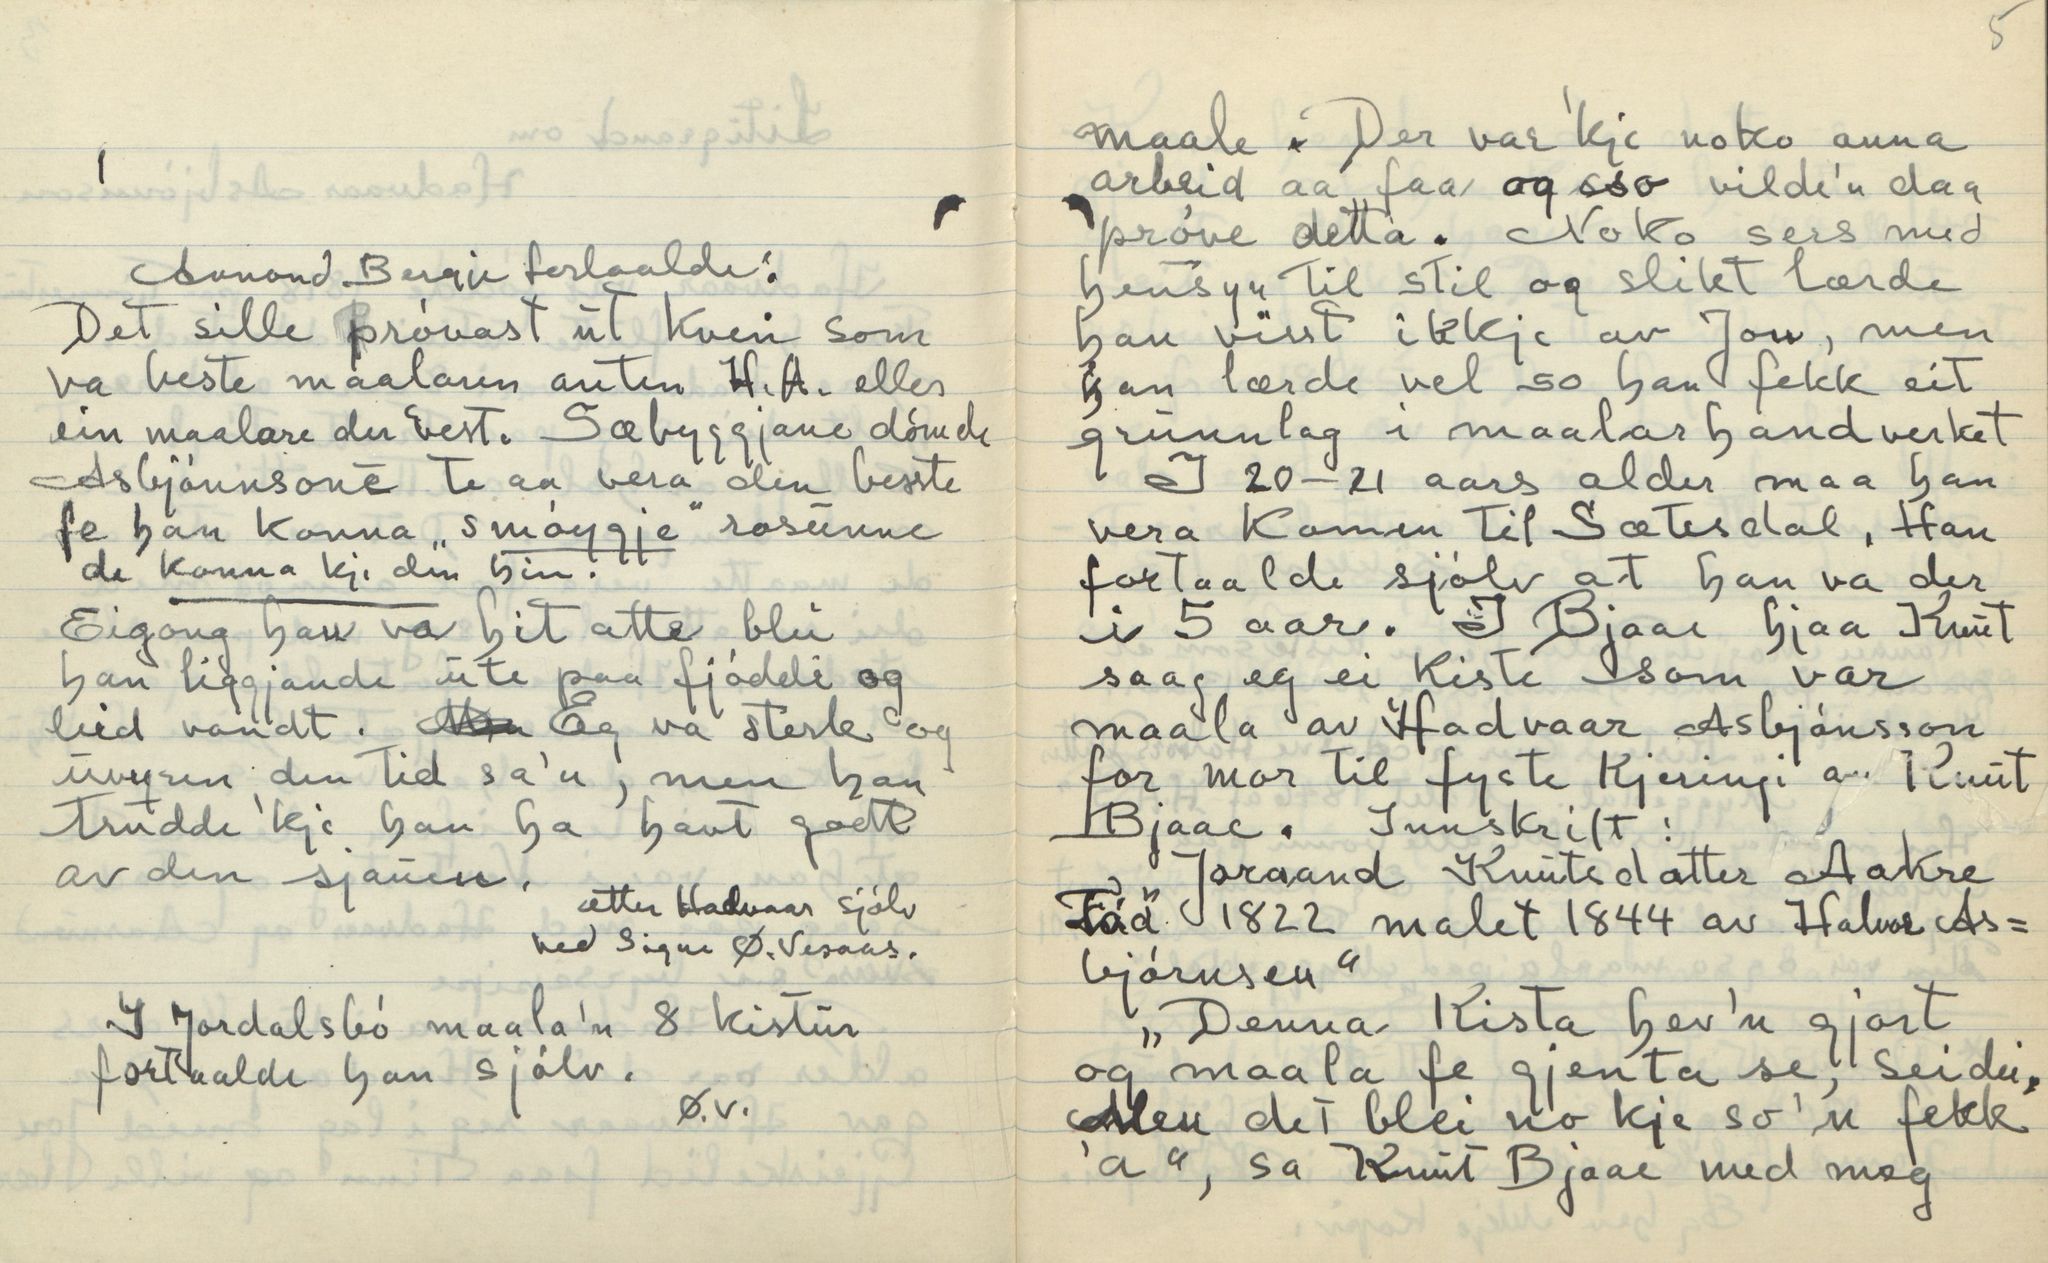 Aamond Bergje fortaalde:
Det sille próvast út kven som
va beste maalaren anten H.A. elles
ein maalare der vest. Sæbyggjane dómde
Asbjónnsone te aa vera den besste
fe han konna „smóygje" rosúnne
de konna kje den hin.
Eigong han va hit atte blei
han liggjande úte paa fjóddei og
leid vondt. Eg va sterk og
úvyren den tid sa'n, men han
trudde 'kje han ha havt godt
av den sjauen.
etter Hadvaar sjólv
ved Signe Ø. Vesaas.
I Jordalsbó maala'n 8 kistúr
fortaalde han sjólv.
Ø.V.
5
maale. Der var 'kje noko anna
arbeid aa faa og sso vilde'n daa
próve detta. Noko sers med
hensyn til stil og slikt lærde
han visst ikkje av Jon, men
han lærde vel so han fekk eit
grúnnlag i maalarhandverket
I 20-21 aars alder maa han
vera komen til Sætesdal, Han
fortaalde sjólv at han va der
i 5 aar. I Bjaae hjaa Knút
saag eg ei kiste som var
maala av Hadvaar Asbjónsson
for mor til fyste kjeringi a Knút
Bjaae. Innskrift:
„Joraand Knútsdatter Aakre
Fód 1822 malet 1844 av Halvor As=
bjórnsen"
„Denna Kista hev'n gjort
og maala fe gjenta se, seidei.
Men det blei no kje so'n fekk
'a", sa Knút Bjaae med meg